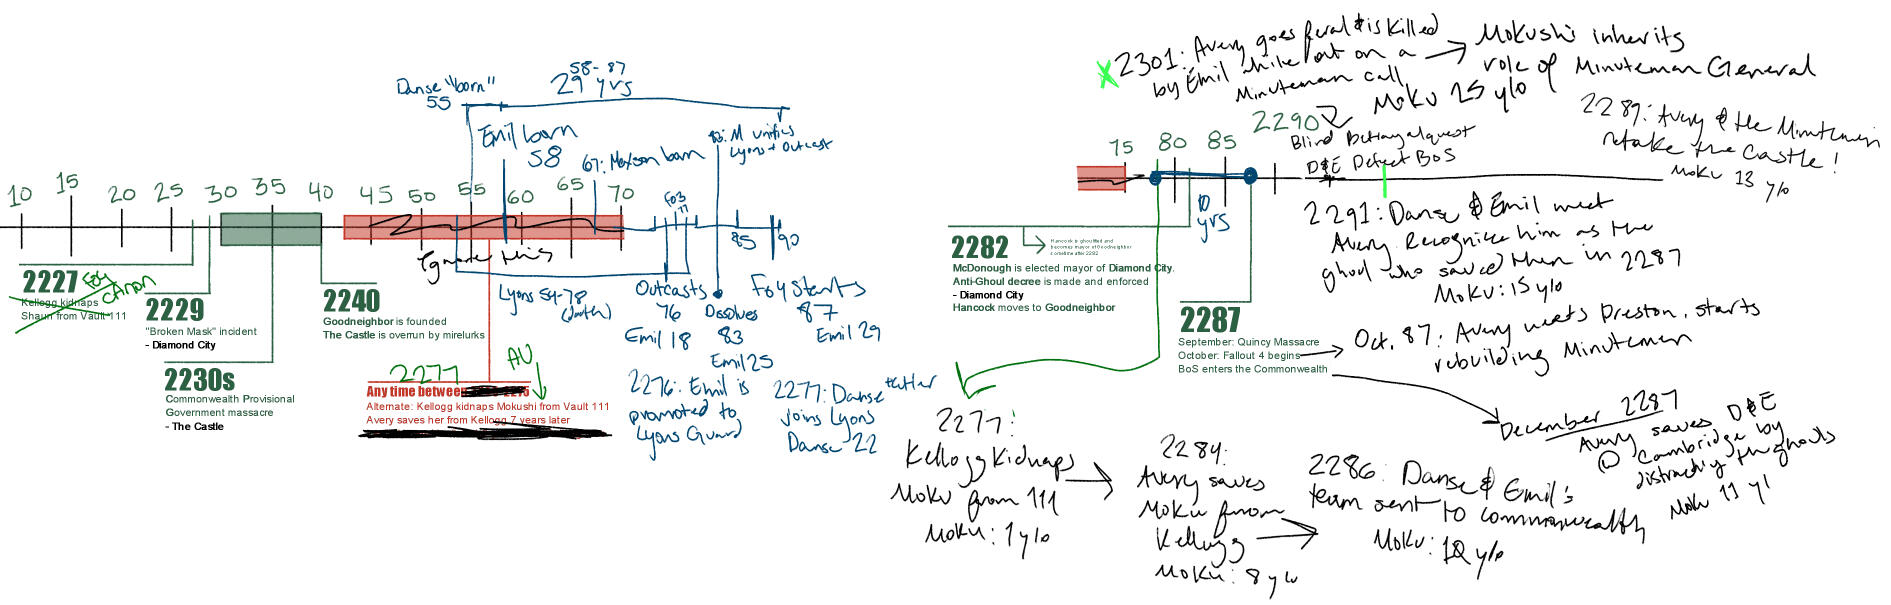 10 15 20 25 30 35 40 45 50 55 60 65 70
2227
FO4 CANON
Kellogg kidnaps
Shaun from Vault 111
2229
"Broken Mask" incident
- Diamond City
2230s
Commonwealth Provisional
Government massacre
- The Castle
2240
Goodneighbor is founded
The Castle is overrun by mirelurks
Ignore this
2277
AU
Any time between
Alternate: Kellogg kidnaps Mokushi from Vault 111
Avery saves her from Kellogg 7 years later
Danse "born"
55
58-87
29 yrs
Emil born
58
67: Maxson born
83: M unifies
Lyons + Outcast
FO3
77
85
90
Lyons 54-78
(death)
Outcasts
76
Emil 18
Dissolves
83
Emil 25
Fo4 Starts
87
Emil 29
2276: Emil is
promoted to
Lyons Guard
2277: Danse
joins Lyons
Danse 22
75 80 85 2290
10
yrs
2282
Hancock is ghoulified and
becomes mayor of Goodneighbor
sometime after 2282
McDonough is elected mayor of Diamond City.
Anti-Ghoul decree is made and enforced
- Diamond City
Hancock moves to Goodneighbor
2287
September: Quincy Massacre
October: Fallout 4 begins
BoS enters the Commonwealth
X 2301: Avery goes feral & is killed
by Emil while out on a
Minuteman call
Moku 25 y/o
Mokushi inherits
role of Minuteman General
Blind Betrayal quest
D&E Defect BoS
2289: Avery & the Minutemen
retake the Castle!
Moku 13 y/o
2291: Danse & Emil meet
Avery. Recognize him as the
ghoul who saved them in 2287
Moku: 15 y/o
Oct. 87: Avery meets Preston, starts
rebuilding Minutemen
December 2287
Avery saves D&E
@ Cambridge by
distracting the ghouls
Moku 11 y/
2277:
Kellogg Kidnaps
Moku from 111
Moku: 1 y/o
2284:
Avery saves
Moku from
Kellogg
Moku: 8 y/o
2286: Danse & Emil's
team sent to commonwealth
Moku: 10 y/o